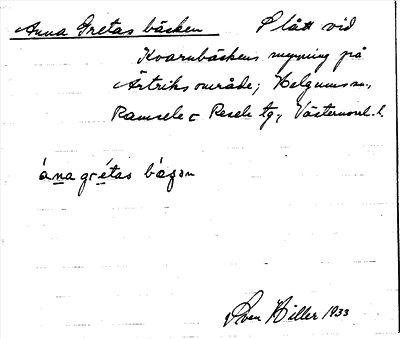 Anna Gretas bäcken Plått vid
Kvarnbäckens mynning på
Ärtriks område; Helgums sn.,
Ramsele o Resele tg., Västernorrl. l.
ánagrétas bác̨on
Sven Hiller 1933